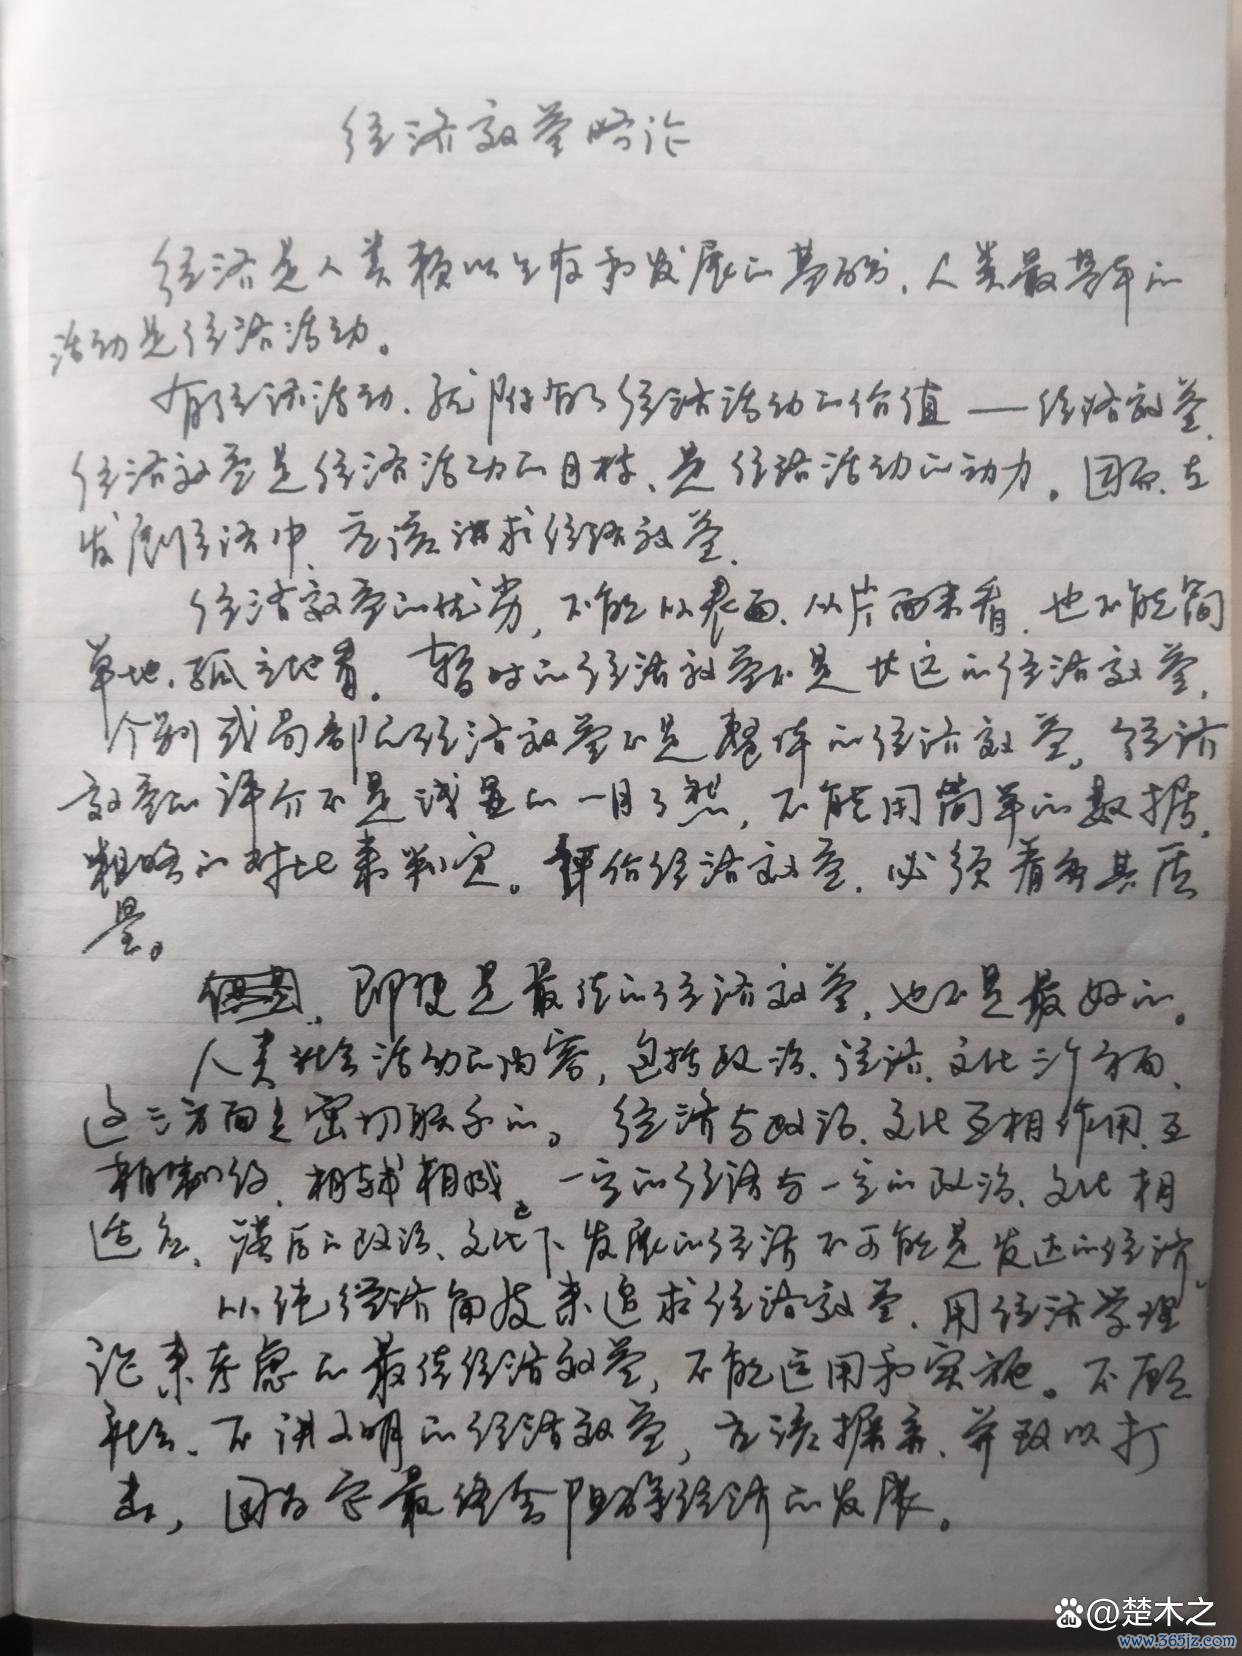 经济效益略论
经济是人类赖以生存和发展的基础,人类最基本的
活动是经济活动。
有了经济活动,就附有了经济活动的价值——经济效益,
经济效益是经济活动的目标、是经济活动的动力。因而,在
发展经济中,应该讲求经济效益。
经济效益的优劣,不能从表面、从片面来看,也不能简
单地、孤立地看。暂时的经济效益不是长远的经济效益,
个别或局部的经济效益不是整体的经济效益。经济
效益的评介不是浅显的一目了然,不能用简单的数据、
粗略的对比来判定。评价经济效益,必须着重其质
量。
即便是最佳的经济效益,也不是最好的。
人类社会活动的内容,包括政治、经济、文化三个方面,
这三方面是密切联系的。经济与政治、文化互相作用、互
相制约、相辅相成。一定的经济与一定的政治、文化相
适应,落后的政治、文化下发展的经济不可能是发达的经济。
以纯经济角度来追求经济效益,用经济学理
论来考虑的最佳经济效益,不能运用和实施。不顾
社会、不讲文明的经济效益,应该摒弃,并致以打
击,因为它最终会阻碍经济的发展。
@楚木之
www.365jz.com